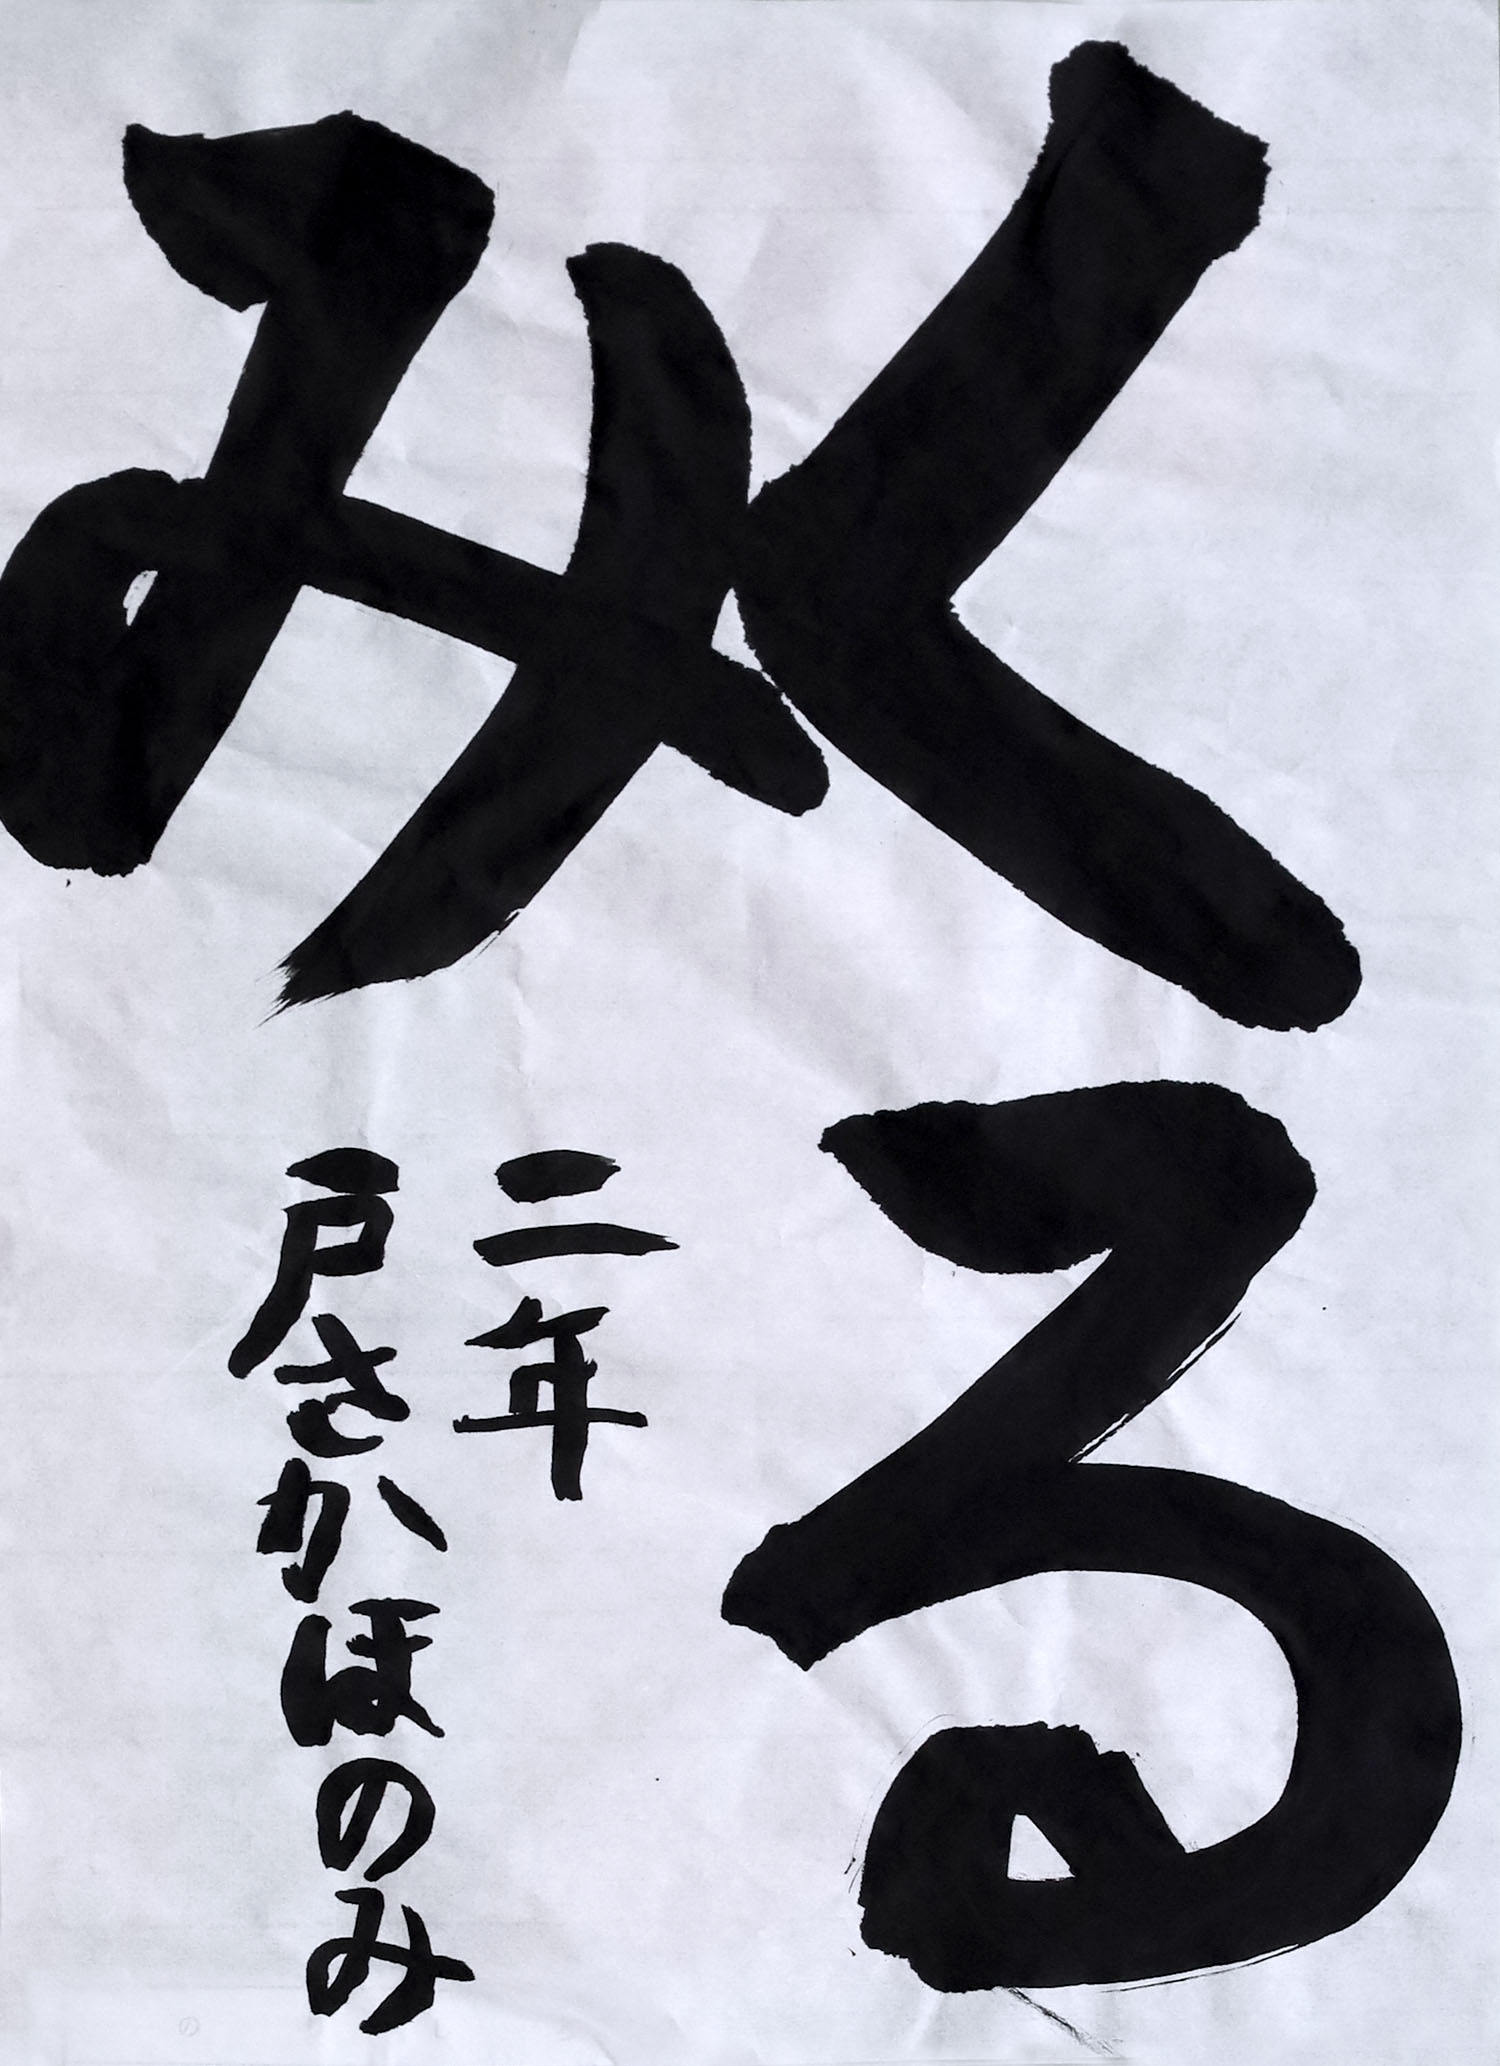 くる
み
二年
戸さかほのみ